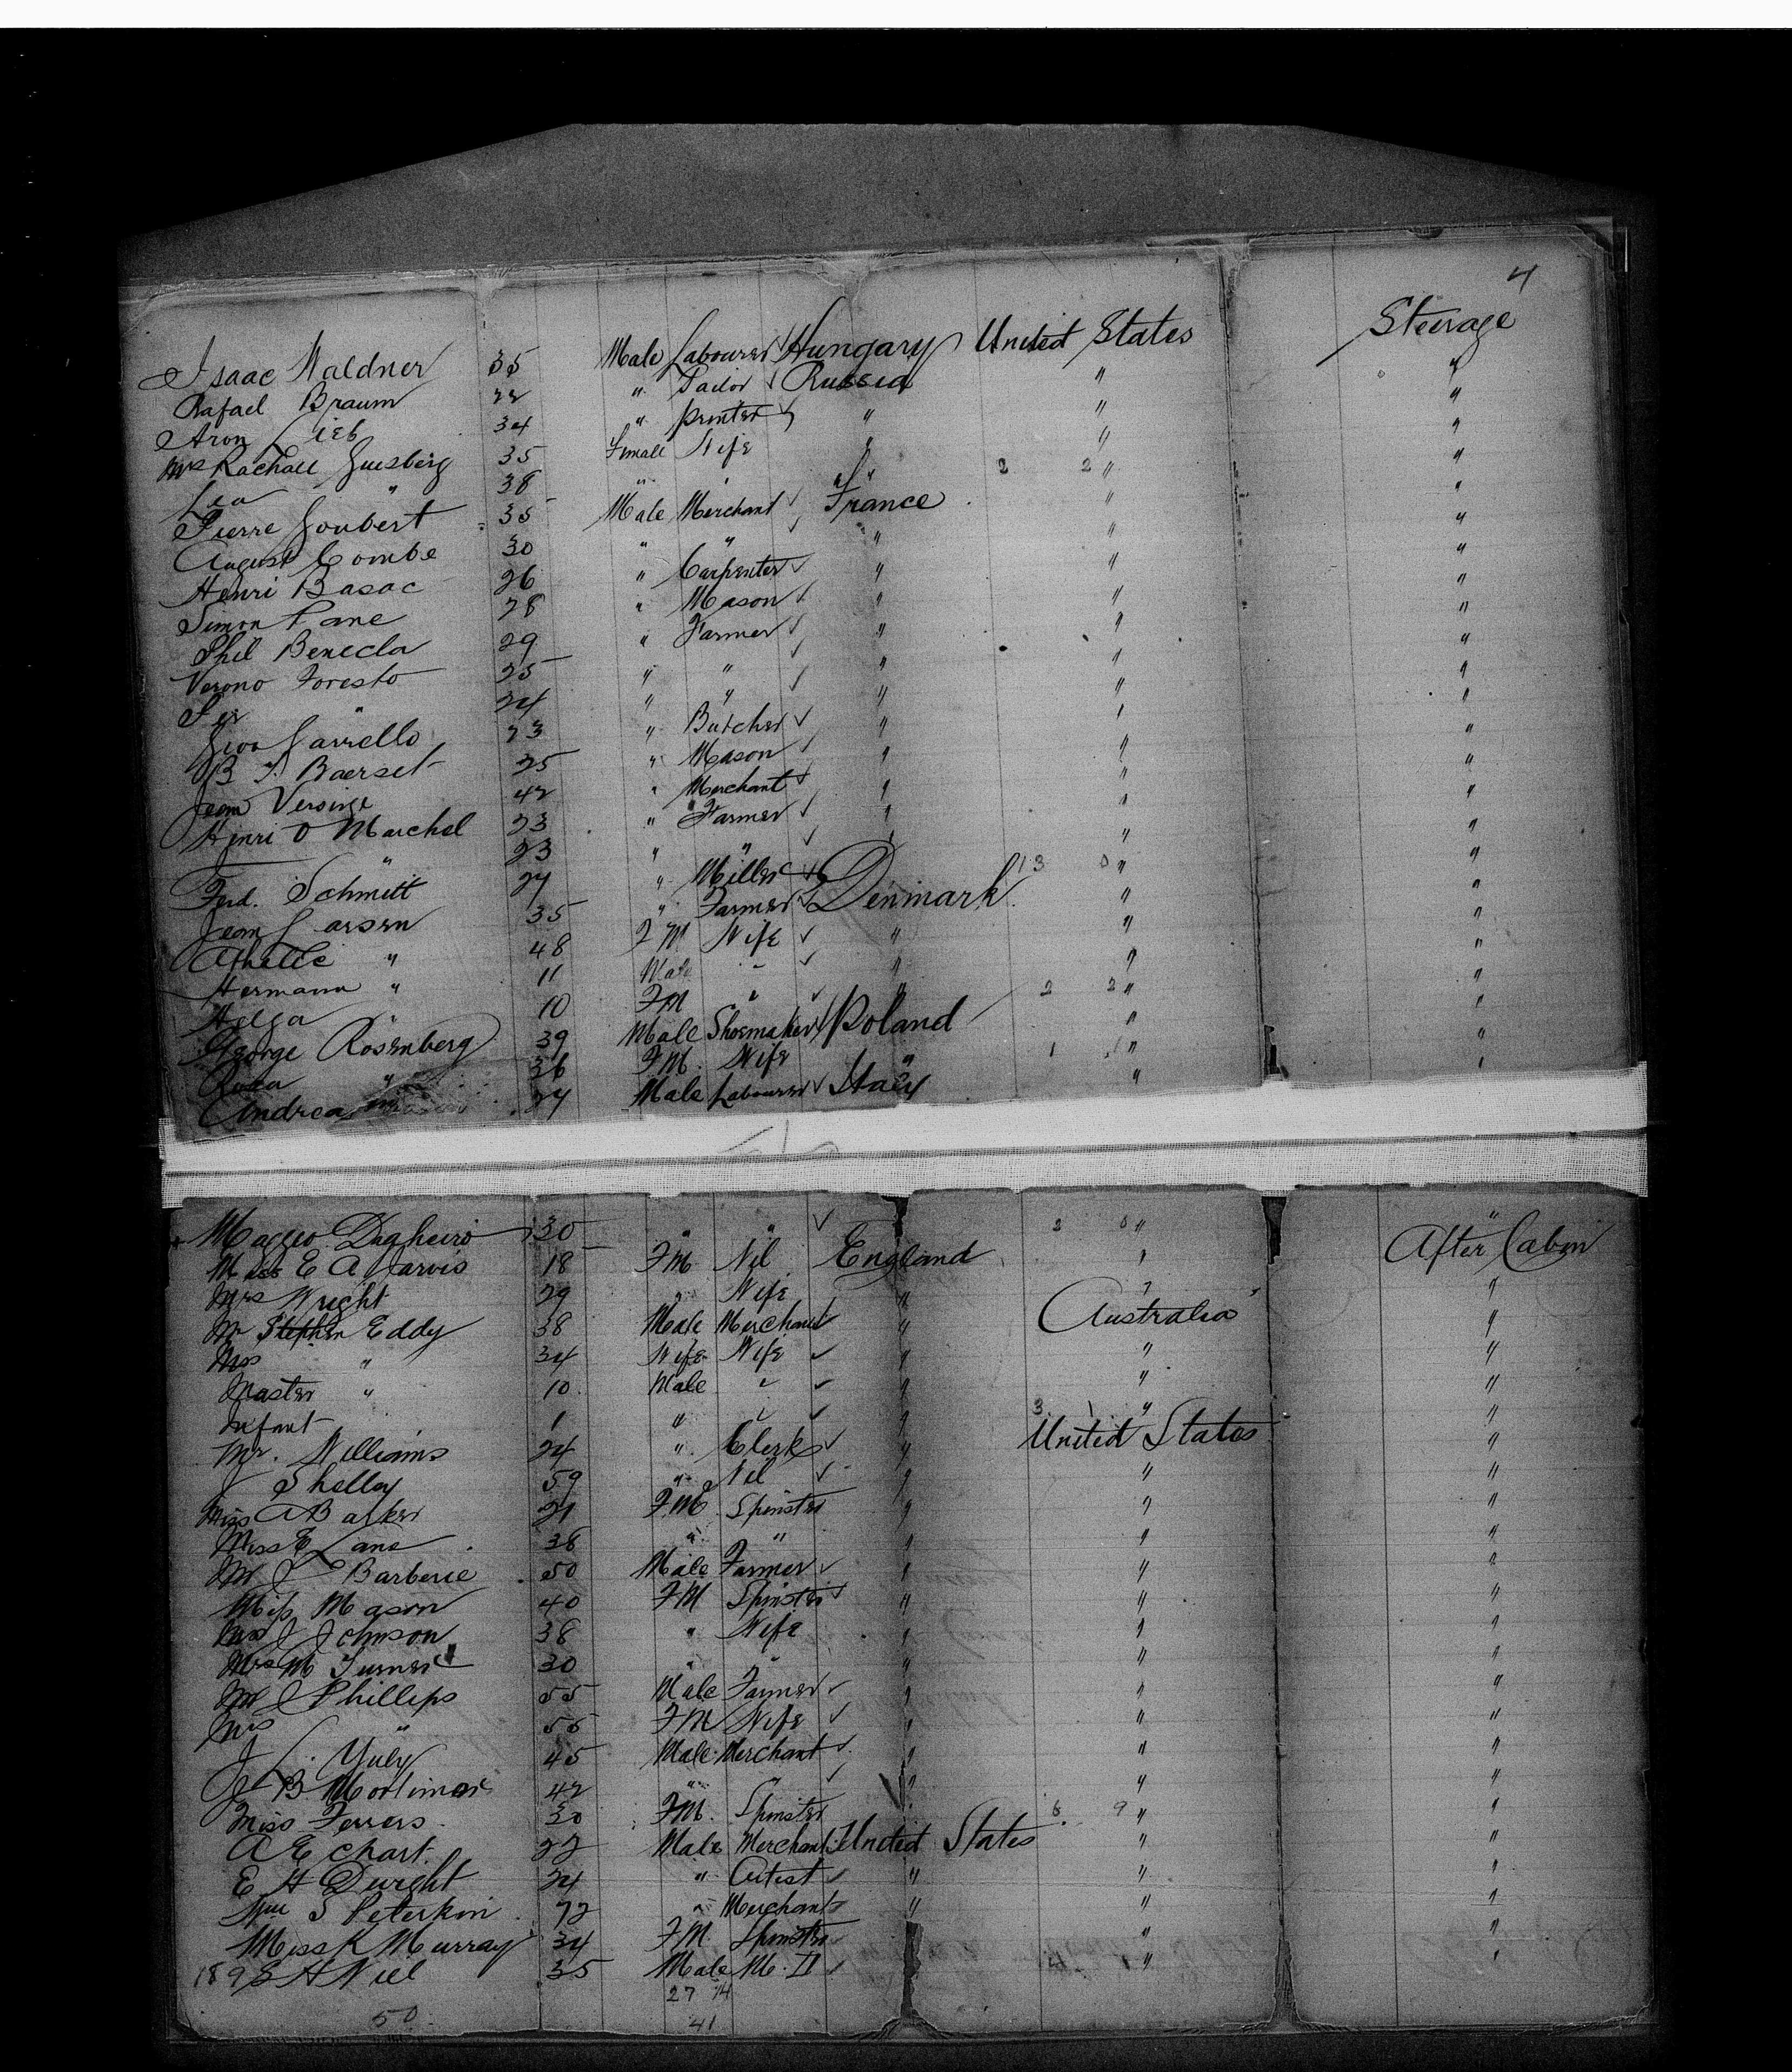 4
Isaac Waldner 35 Male Labourer Hungary United States Steerage
Rafael Braum 22 " Tailor Russia " "
Aron Lieb 34 " printer " " "
Mrs Rachael 35 Female Wife " " "
Lea " 38 " " " 2 2 " "
Pierre Joubert 35 Male Merchant France " "
August Combe 30 " " " " "
Henri Basac 26 " Carpenter " " "
Simon Pane 28 " Mason " " "
Phil Benecla 29 " Farmer " " "
Verono Foresto 25 " " " " "
" 24 " " " " "
Garrello 23 " Butcher " " "
B Baerset 25 " Mason " " "
Jean 42 " Merchant " " "
Henri D Marchal 23 " Farmer " " "
" 23 " " " "
Ferd. Schmitt 27 " Miller 13 0 " "
Jean Larsen 35 " Farmer Denmark " "
" 48 FM Wife " " "
Hermann " 11 Male " " " "
Helga 10 FM " " 2 2 " "
George Rosenberg 39 Male Shoemaker Poland " "
" 36 FM. Wife " 1 1 " "
Andrea 27 Male Labourer Italy " "
Maggeo 30 " " 2 0 " "
Miss E A Jarvis 18 FM Nil England " After Cabin
Mrs Wright 29 " Wife " " "
Mr Stephen Eddy 38 Male Merchant " Australia "
Mrs " 34 Wife Wife " " "
Master " 10 Male " " " "
Infant 1 " " " 3 1 " "
Mr. Williams 24 " Clerk " United States "
J Shelley 59 " Nil " " "
Miss A Barker 21 F.M. Spinster " " "
Miss E Lane 38 " " " " "
Mr J Barberie 50 Male Farmer " " "
Miss Mason 40 FM Spinster " " "
Mrs J Johnson 38 " Wife " " "
Mrs M Turner 30 " " " " "
Mr J Phillips 55 Male Farmer " " "
Mrs " 55 FM Wife " " "
J L. Yuly 45 Male Merchant " " "
J B Mortimer 42 " " " "
Miss Ferrers 30 FM. Spinster " 6 9 " "
A E chart. 22 Male Merchant United States " "
E H Dwight 24 " Artist " " "
S Peterkin 72 " Merchant " " "
Miss K Murray 34 FM Spinster " "
189 E H Niel 35 Male M. D " "
27 14
50 41